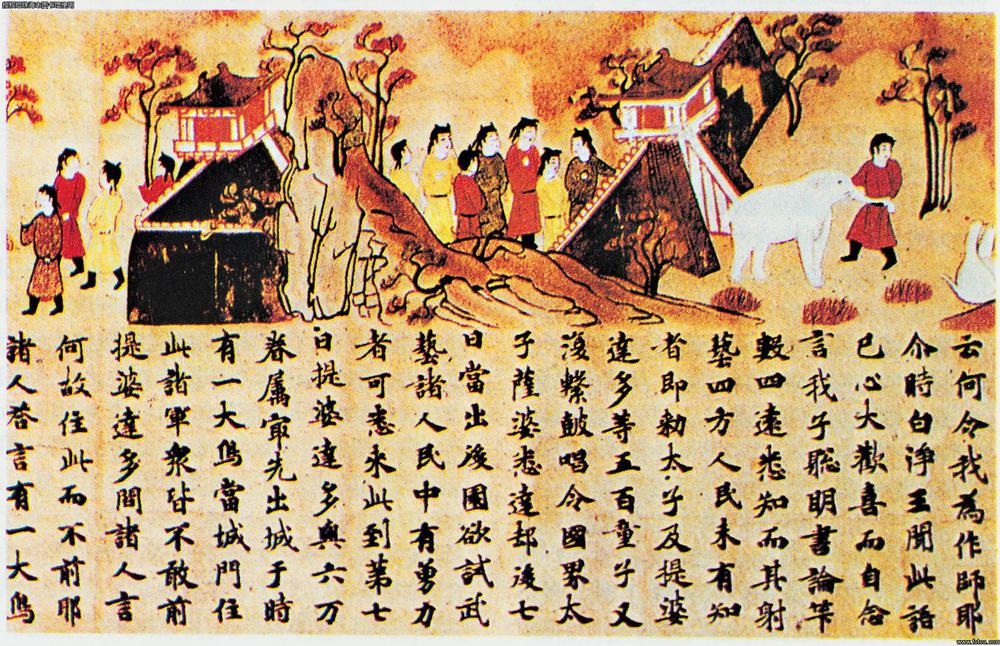 授权给珠海市图书馆使用
云何令我為作師耶
尒時白淨王聞此語
已心大歡喜而自念
言我子聰明書論筭
數四遠悉知而其射
藝四方人民未有知
者即勅太子及提婆
達多等五百童子又
復擊鼓唱令國界太
子薩婆悉達却後七
日當出後園欲試武
藝諸人民中有勇力
者可悉来此到第七
日提婆達多與六万
眷屬冣先出城于時
有一大象當城門住
此諸軍衆皆不敢前
提婆達多問諸人言
何故住此而不前耶
諸人荅言有一大象
www.fotoe.com